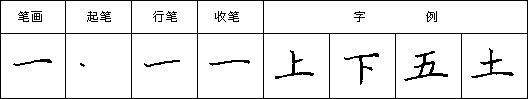 笔画 起笔 行笔 收笔 字 例
一 丶 一 一 上 下 五 土